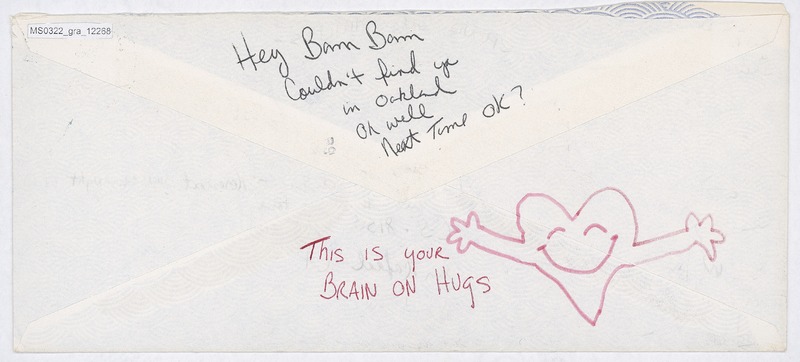 MS0322_gra_12268
Hey Bam Bam
Couldn't find ya
in Oakland
Oh well
Next Time OK?
This is your
BRAIN ON HUGS